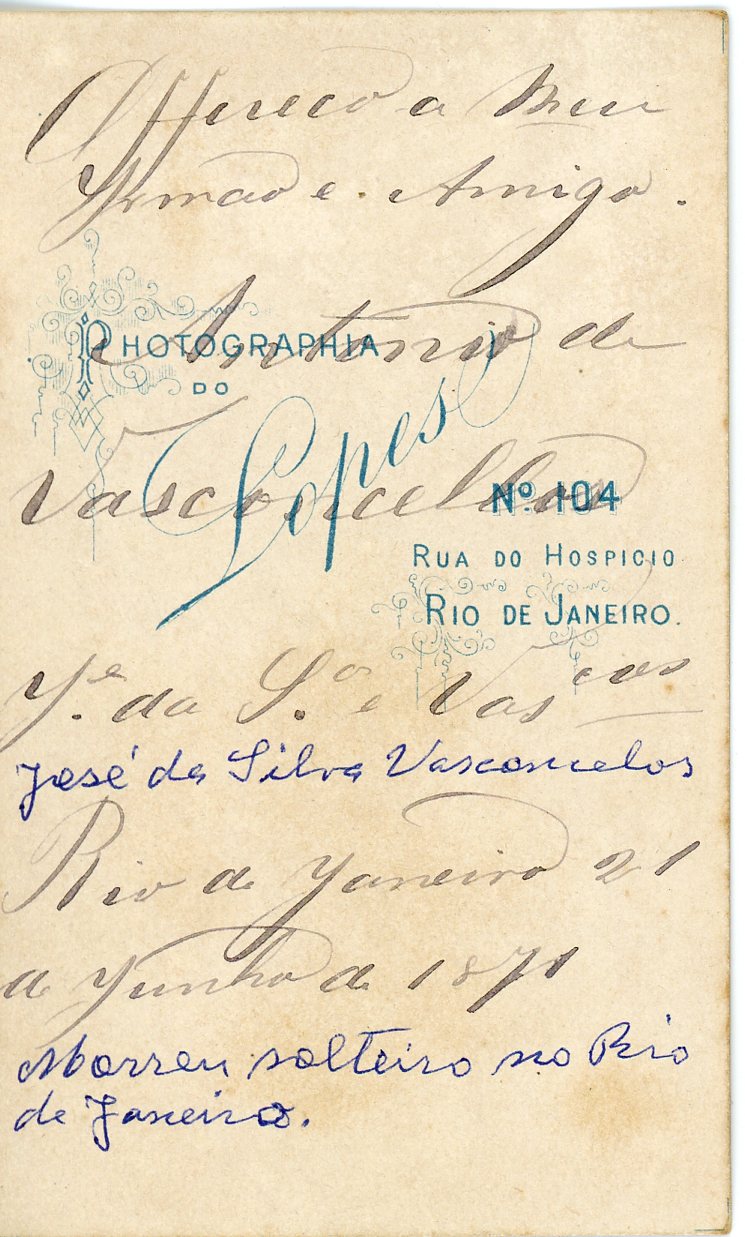 Offereco a Meu
Yrmão e. Amigo.
Antonio de
PHOTOGRAPHIA
DO
Lopes
Vasconcellos
Nº. 104
RUA DO HOSPICIO
RIO DE JANEIRO.
J.e da S.a e Vas.cos
José da Silva Vasconcelos
Rio de Janeiro 21
de Junho de 1871
Morreu solteiro no Rio
de Janeiro.